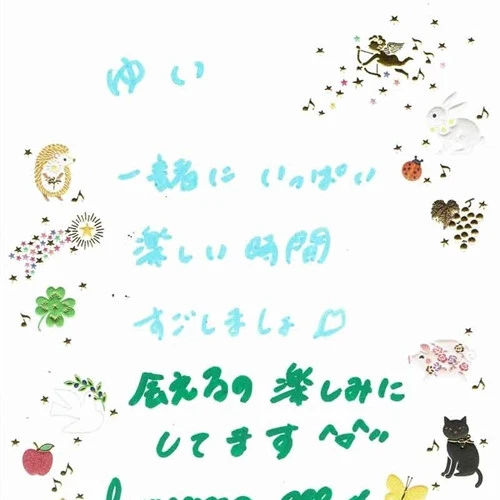 ゆい
一緒に いっぱい
楽しい 時間
すごしましょ♡
会えるの 楽しみに
してます^o^